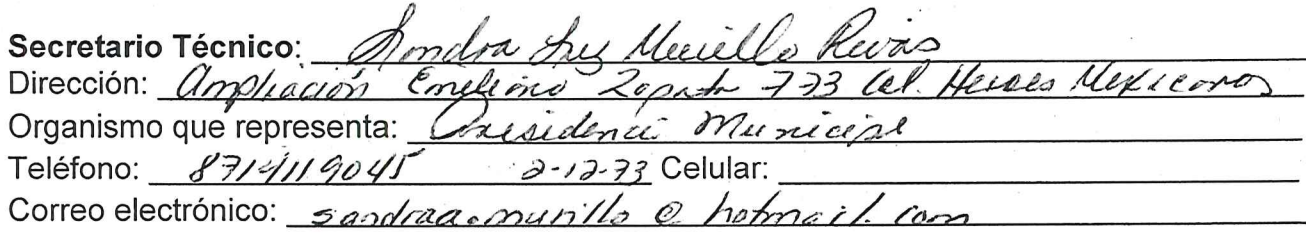 Secretario Técnico: Sandra Luz Murillo Rivas
Dirección: Ampliación Emiliano Zapata 773 Col. Heroes Mexicanos
Organismo que representa: Presidenci Municipal
Teléfono: 8714119045 2-12-73 Celular:
Correo electrónico: @ hotmail.com